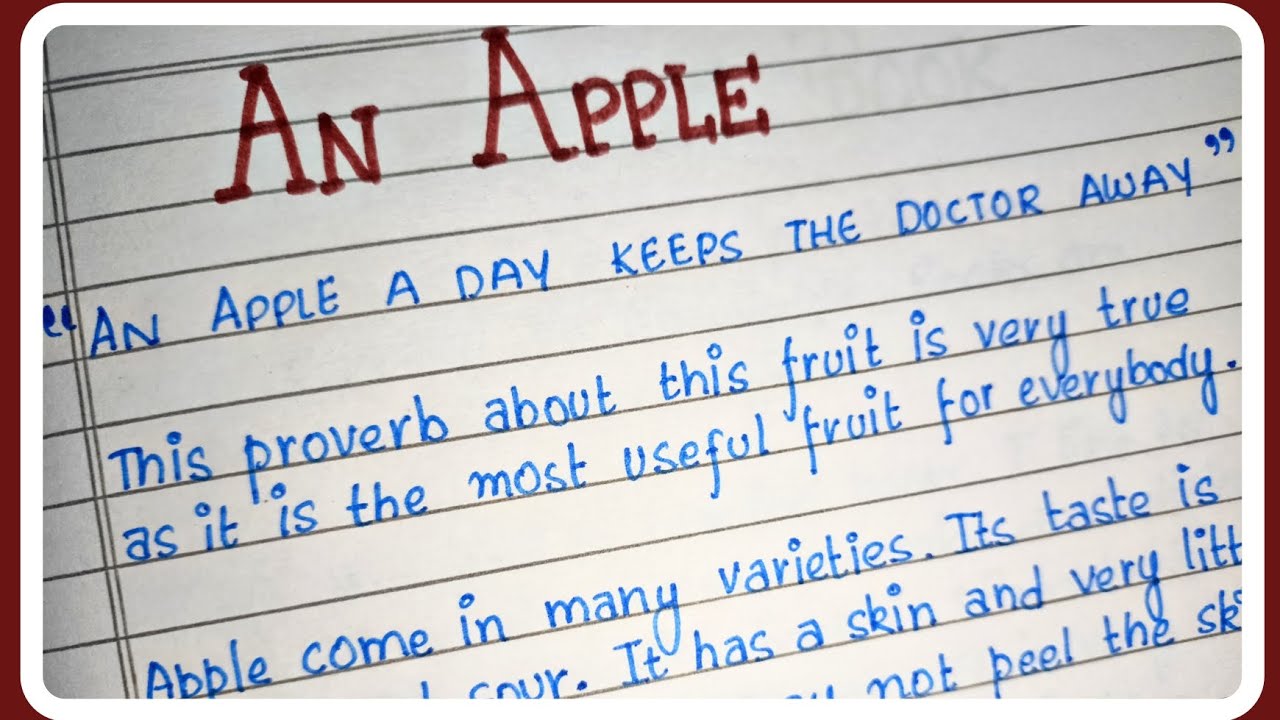 An Apple
“An Apple A DAY KEEPS THE DOCTOR AWAY”
This proverb about this fruit is very true
as it is the most useful fruit for everybody.
Apple come in many varieties. Its taste is
sour. It has a skin and very
not peel the